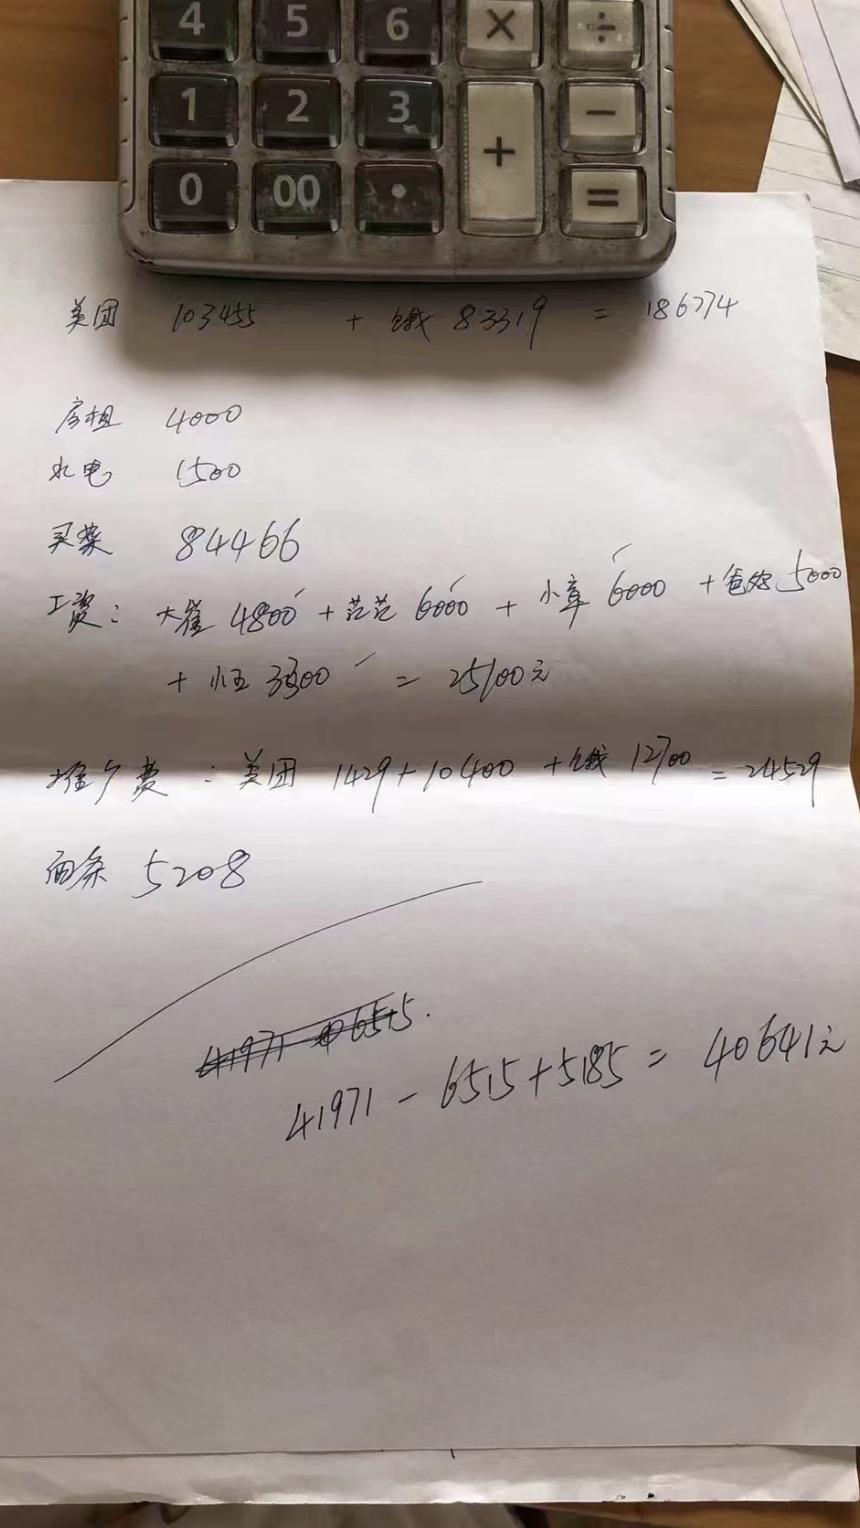 4 5 6 × ÷
1 2 3 + −
0 00 · =
美团 103455 + 饿 83319 = 186774
房租 4000
水电 1500
买菜 84466
工资: 大崔 4800 + 范范 6000 + 小章 6000 + 爸妈 5000
+ 小五 3300 = 25100元
推广费: 美团 1429+10400 + 饿 12700 = 24529
面条 5208
41971 - 6515+5185 = 40641元